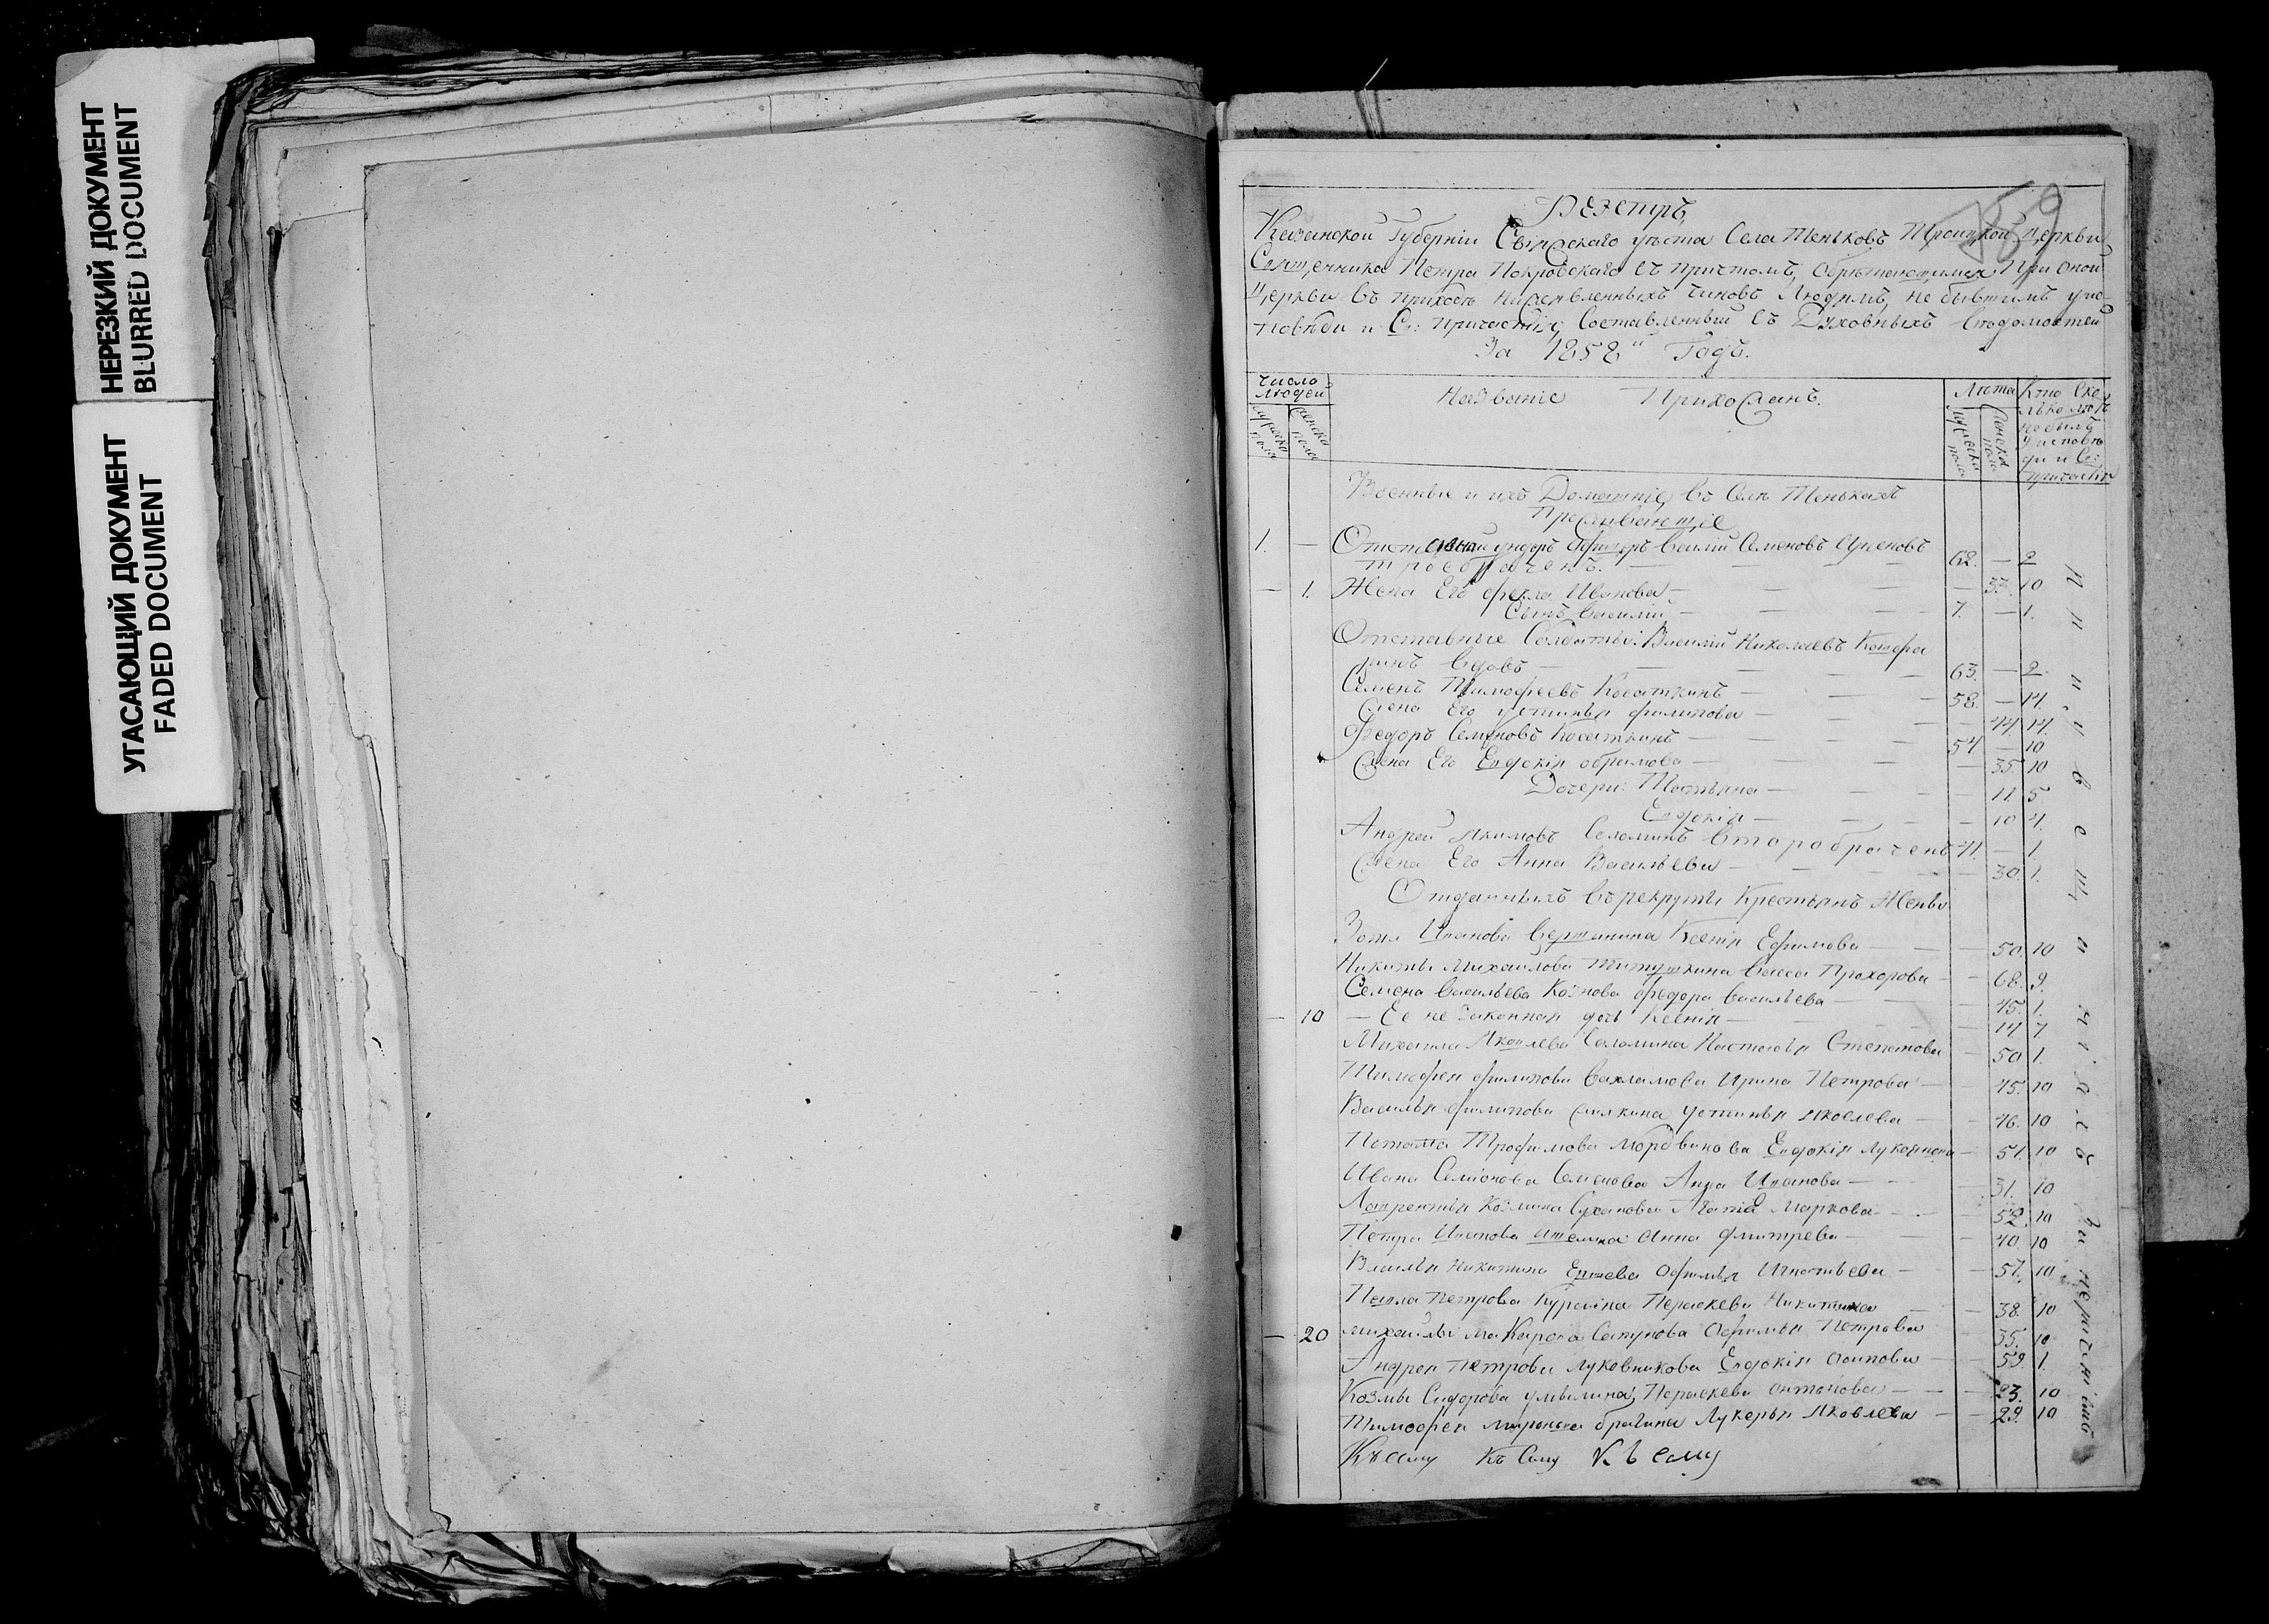 НЕРЕЗКИЙ ДОКУМЕНТ
BLURRED DOCUMENT
УГАСАЮЩИЙ ДОКУМЕНТ
FADED DOCUMENT
59
Реэстръ
Казанской Губерніи Свіяжскаго уѣзта Села Теньковъ Троицкой Церкви
Священника Петра Покровскаго съ причтомъ, обрѣтающимся При оной
Церкви въ приходѣ нижеявленныхъ чиновъ Людямъ, не бывшимъ у ис-
повѣди и Св: причастія, Составленный съ Духовныхъ вѣдомостей
За 1858й Годъ.
Число людей
мужеска пола
женска пола
Названіе Прихожанъ.
Лѣта
мужеска пола
женска пола
Кто Сколько лѣтъ не былъ у исповѣди и Св: причастія
Военные и ихъ Домашніе, въ Селѣ Тенькахъ
Проживающіе
1. — Отставный ундеръ офицеръ Василій Семеновъ
троебраченъ. 62. — 2
— 1. Жена Его Фекла Иванова — 33. 10
Сынъ Василій — 7. — 1.
Отставные Солдаты: Василій Николаевъ
вдовъ — 63. — 2
Семенъ Тимофеевъ Косаткинъ — 58. — 14.
Жена Его Устинья Филипова — 44. 14.
Федоръ Семеновъ Косаткинъ — 54 — 10
Жена Его Евдокія Абрамова — 35. 10
Дочери: Татьяна — 11 5
Евдокія — 10 4.
Андрей Якимовъ Соломинъ второбраченъ 41. — 1.
Жена Его Анна Васильева — 30. 1.
Отданныхъ въ рекруты Крестьянъ Жены
Иванова Ксенія Ефимова — 50. 10
Никиты Михайлова Титушкина Васса Прохорова — 68. 9.
Семена Васильева Козлова Федора Васильева — 45. 1.
— 10 — Ее не законная дочь Ксенія — 14 7
Михаила Яковлева Соломина Настасья Степанова — 50 1.
Тимофея Филипова Вахламова Ирина Петрова — 45. 10
Василья Филипова Устинья Яковлева — 46. 10
Потапа Трофимова Мордвинова Евдокія Лукоянова — 51. 10
Ивана Семіонова Семенова Анна Иванова — 31. 10
Лаврентья Козмина Суханова Агапія Маркова — 52. 10
Петра Иванова Анна Дмитрева — 40. 10
Василья Никитина Ершева Офимья Игнатьева — 57. 10
Павла Петрова Куралина Пераскева Никитина — 38. 10
— 20 Михайлы Макарова Сапунова Офимья Петрова — 35. 10
Андрея Петрова Луковникова Евдокія Осипова — 59. 1.
Козмы Сидорова Пераскева Антонова — 23. 10
Тимофея Миронова Брагина Лукерья Яковлева — 29. 10
Къ сему Къ Сему Къ сему